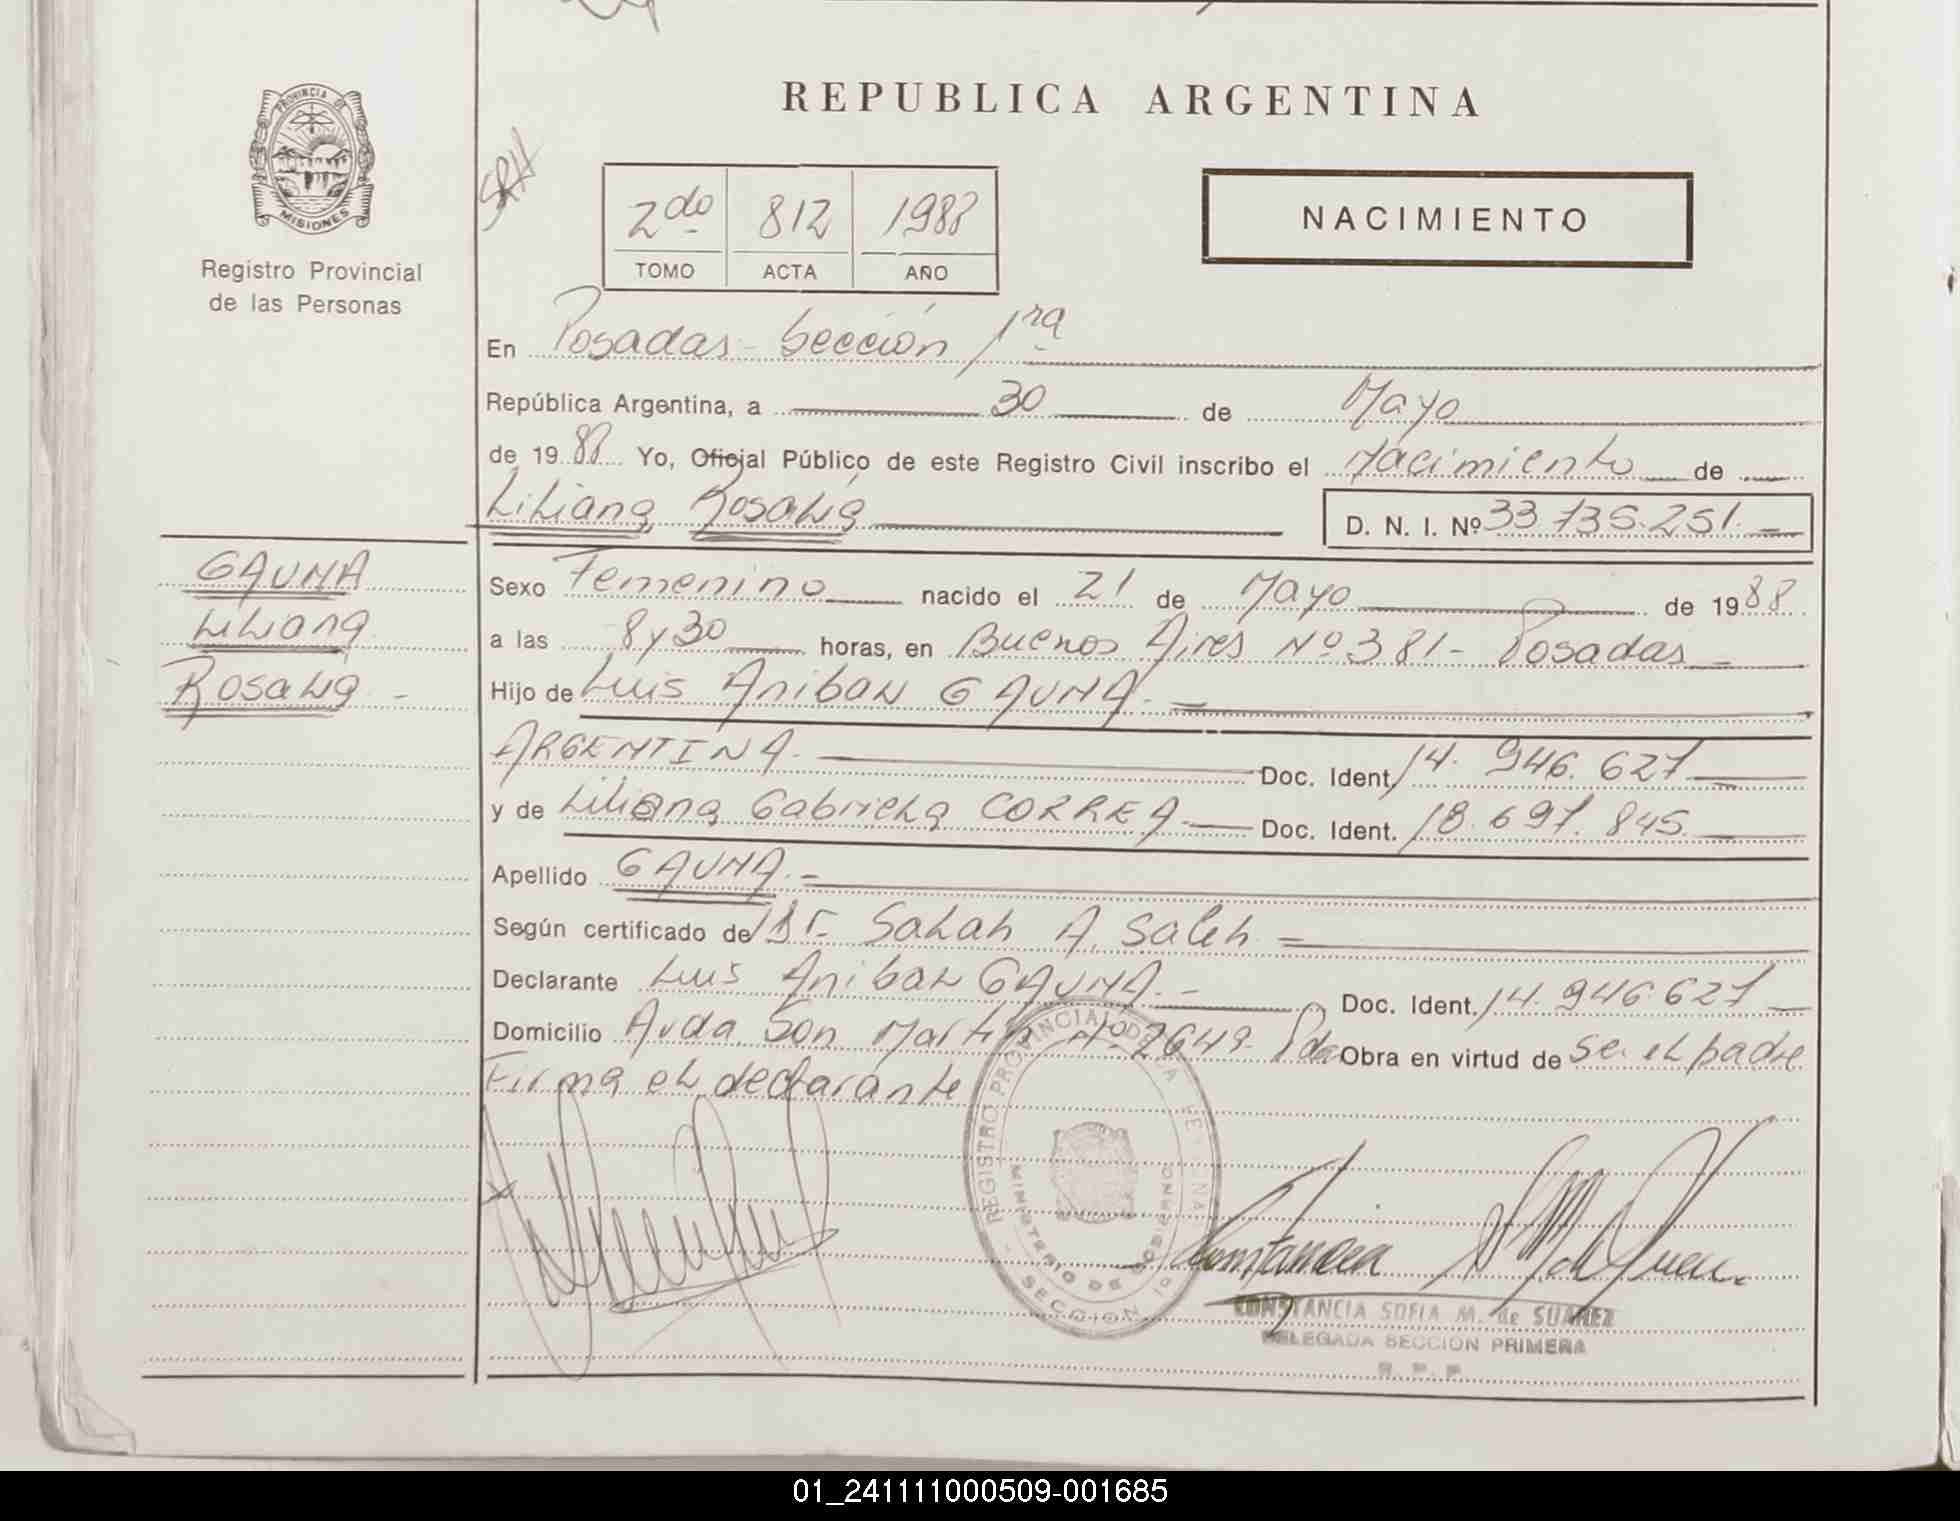 REPUBLICA ARGENTINA
PROVINCIA DE
MISIONES
Registro Provincial
de las Personas
SRH
2do 812 1988
TOMO ACTA AÑO
NACIMIENTO
En Posadas - Sección 1ra
República Argentina, a 30 de Mayo
de 1988 Yo, Oficial Público de este Registro Civil inscribo el Nacimiento de
Liliana Rosalia D. N. I. Nº 33.735.251.
GAUNA
Liliana
Rosalia -
Sexo Femenino nacido el 21 de Mayo de 1988
a las 8 y 30 horas, en Buenos Aires Nº 381 - Posadas
Hijo de Luis Anibal GAUNA.
ARGENTINA. Doc. Ident. 14.946.627
y de Liliana Gabriela CORREA. Doc. Ident. 18.697.845.
Apellido GAUNA. -
Según certificado de Dr. Salah A. Saleh
Declarante Luis Anibal GAUNA. - Doc. Ident. 14.946.627
Domicilio Avda. San Martin Nº 2649. Pdas Obra en virtud de ser el padre
Firma el declarante
REGISTRO PROVINCIAL DE LAS PERSONAS
MINISTERIO DE GOBIERNO
SECCION 1ª
CONSTANCIA SOFIA M. de SUAREZ
DELEGADA SECCION PRIMERA
R. P. P.
01_241111000509-001685